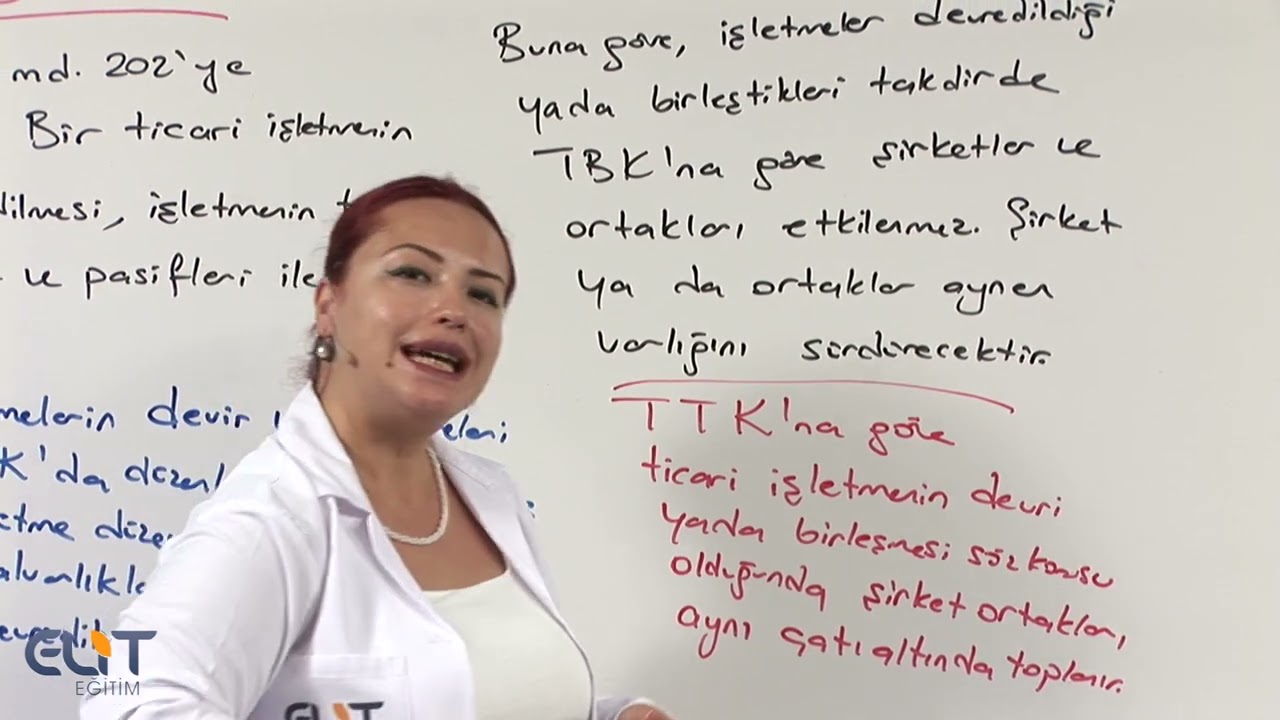 md. 202'ye
Bir ticari işletmenin
ilmesi, işletmenin
ve pasifleri ile
melerin devir
K'da
etme
Buna göre, işletmeler devredildiği
yada birleştikleri takdirde
TBK'na göre şirketler ve
ortakları etkilenmez. Şirket
ya da ortaklar aynen
varlığını sürdürecektir.
TTK'na göre
ticari işletmenin devri
yada birleşmesi söz konusu
olduğunda şirket ortakları,
aynı çatı altında toplanır.
ELİT
EĞİTİM
ELİT